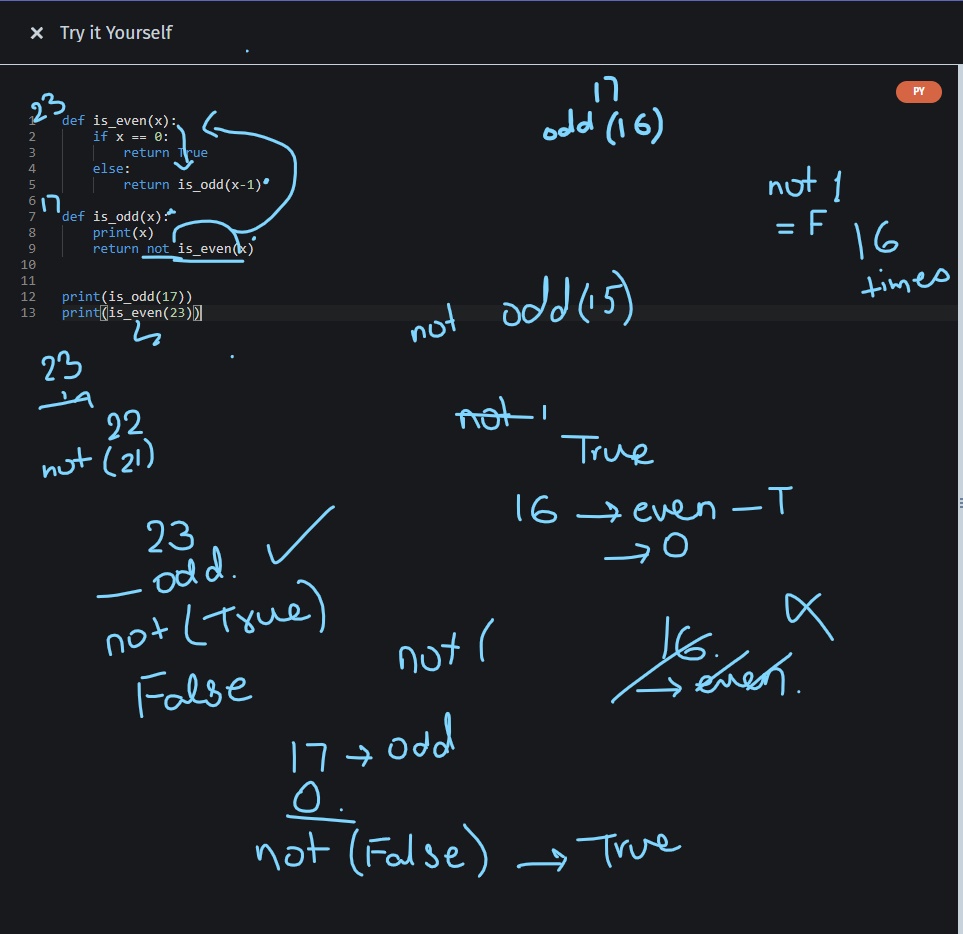 × Try it Yourself
PY
23
1 def is_even(x):
2 if x == 0:
3 return True
4 else:
5 return is_odd(x-1)
6
17
7 def is_odd(x):
8 print(x)
9 return not is_even(x)
10
11
12 print(is_odd(17))
13 print(is_even(23))
17
odd (16)
not 1
= F
16
times
not odd (15)
23
22
not (21)
not 1
True
16 → even — T
→ 0
23
odd.
not (True)
False
not (
16.
→ even.
17 → odd
0.
not (False) → True